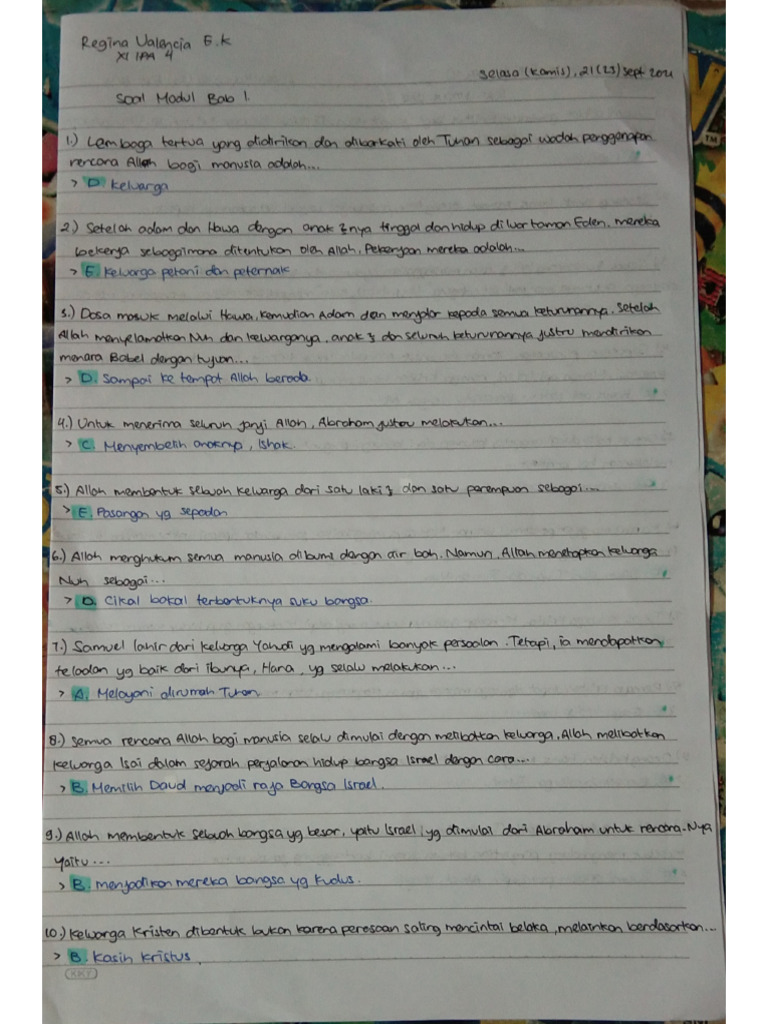 Regina Valencia E.K
XI IPA 4
Selasa (Kamis), 21 (23) Sept 2021
Soal Modul Bab 1.
1.) Lembaga tertua yang didirikan dan diberkati oleh Tuhan sebagai wadah penggenapan
rencana Allah bagi manusia adalah...
> D. Keluarga
2.) Setelah adam dan Hawa dengan anak ²nya tinggal dan hidup di luar taman Eden, mereka
bekerja sebagaimana ditentukan oleh Allah, Pekerjaan mereka adalah...
> E. Keluarga petani dan peternak
3.) Dosa masuk melalui Hawa, kemudian Adam dan menjalar kepada semua keturunannya. Setelah
Allah menyelamatkan Nuh dan keluarganya, anak ² dan seluruh keturunannya justru mendirikan
menara Babel dengan tujuan...
> D. Sampai ke tempat Allah berada.
4.) Untuk menerima seluruh janji Allah, Abraham justru melakukan...
> C. Menyembelih anaknya, Ishak.
5.) Allah membentuk sebuah keluarga dari satu laki ² dan satu perempuan sebagai...
> E. Pasangan yg sepadan
6.) Allah menghukum semua manusia di bumi dengan air bah. Namun, Allah menetapkan keluarga
Nuh sebagai...
> D. Cikal bakal terbentuknya suku bangsa.
7.) Samuel lahir dari keluarga Yahudi yg mengalami banyak persoalan. Tetapi, ia mendapatkan
teladan yg baik dari ibunya, Hana, yg selalu melakukan...
> A. Melayani dirumah Tuhan.
8.) Semua rencana Allah bagi manusia selalu dimulai dengan melibatkan keluarga. Allah melibatkan
keluarga Isai dalam sejarah perjalanan hidup bangsa Israel dengan cara...
> B. Memilih Daud menjadi raja Bangsa Israel.
9.) Allah membentuk sebuah bangsa yg besar, yaitu Israel, yg dimulai dari Abraham untuk rencana-Nya
yaitu...
> B. menjadikan mereka bangsa yg Kudus.
10.) Keluarga Kristen dibentuk bukan karena perasaan saling mencintai belaka, melainkan berdasarkan...
> B. Kasih Kristus.
KKY